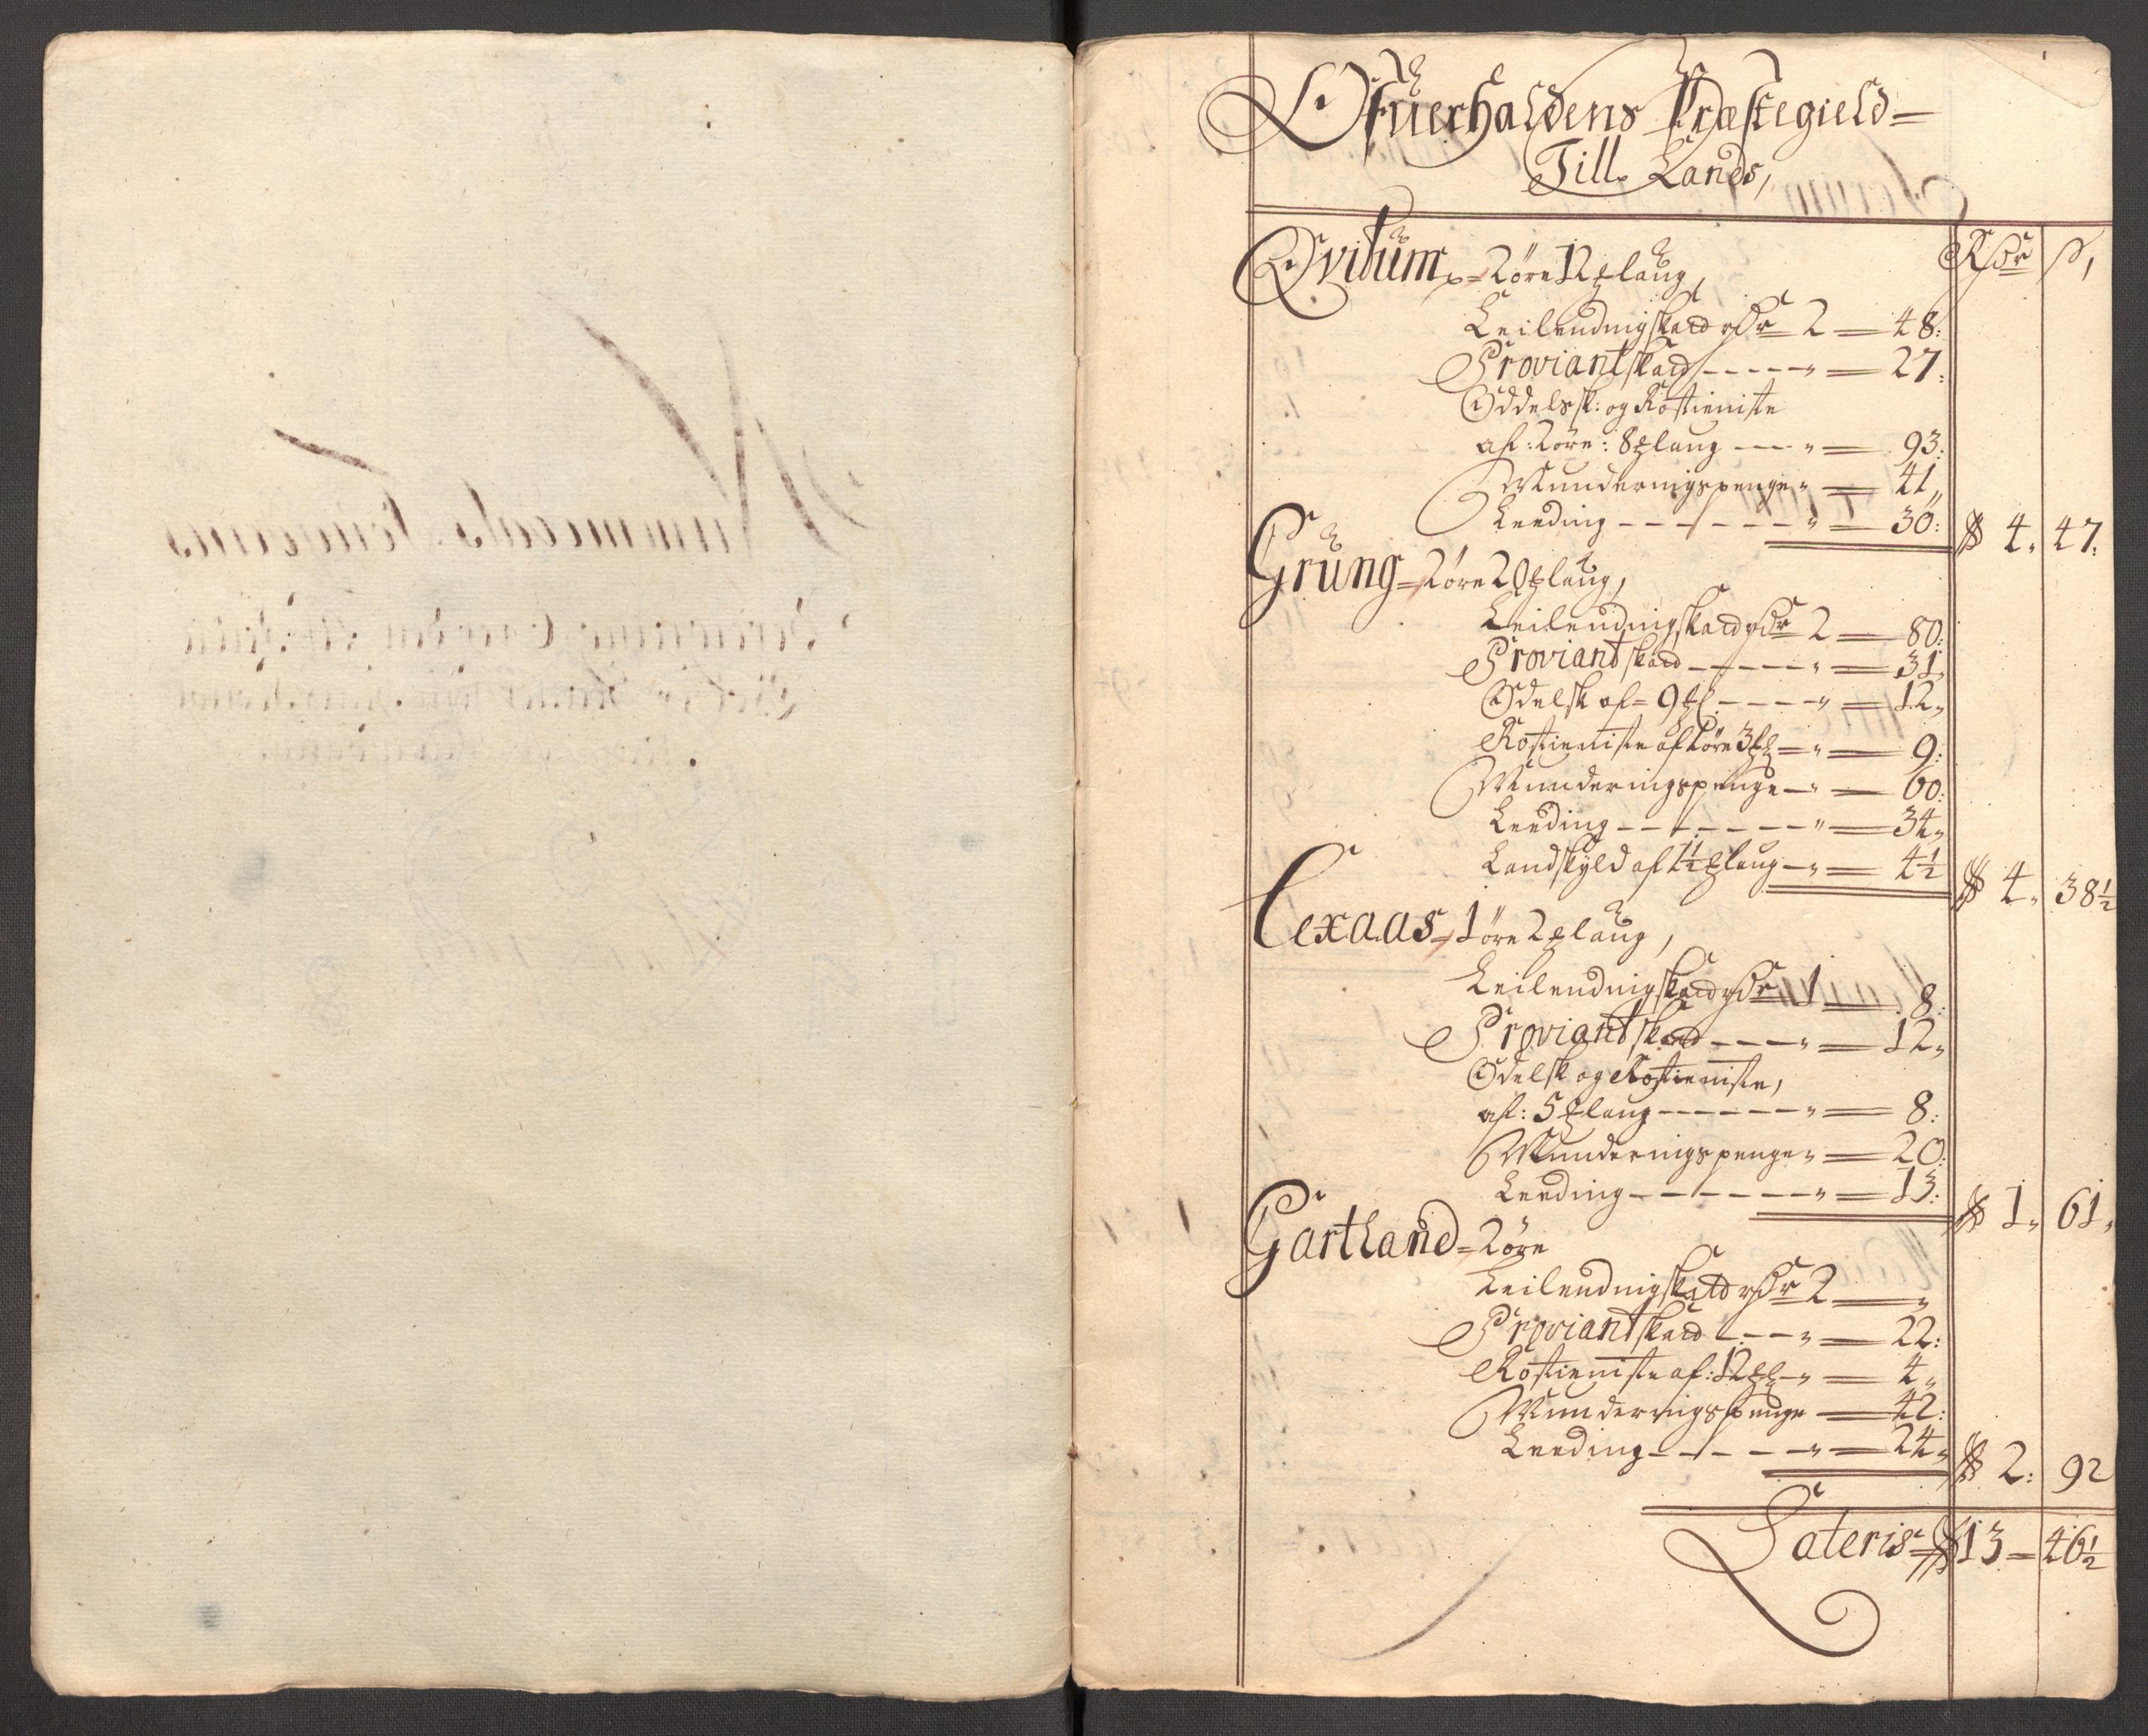 Ofuerhaldens Præstegield=
Till Lands,
Rdr ß,
Qvitum,= 2 øre 12 ₰laug,
Leilendingskatt rdr 2 = 48:
Proviantskatt ----- „ = 27:
Oddelssk: og Rostieniste
af: 2 øre: 8 ₰laug --- „ = 93:
Munderingspenge „ = 41„
Leeding ------ „ = 30: 4„ 47:
Grüng= 2 øre 20 ₰laug,
Leilendingskatt rdr 2 = 80:
Proviantskatt ----- „ = 31„
Odelsk af= 9 ₰l: ---- „ = 12„
Rostieniste af 1 øre 3 ₰l — „ = 9:
Munderingspenge — „ = 60:
Leeding ------- „ = 34„
Landskyld af 1½ ₰laug — „ = 4½ 4„ 38½
Lexaas= 1 øre 2 ₰laug,
Leilendingskatt rdr 1 = 8:
Proviantskatt ---- „ = 12„
Odelsk og Rostieniste,
af: 5 ₰laug ------ „ = 8:
Munderingspenge „ = 20:
Leeding ------- „ = 13: 1„ 61„
Gartland= 2 øre
Leilendingskatt rdr 2 — „
Proviantskatt --- „ = 22:
Rostieniste af: 12 ₰l — „ = 4„
Munderingspenge = 42:
Leeding ------ „ = 24„ 2: 92
Lateris= 13 = 46½